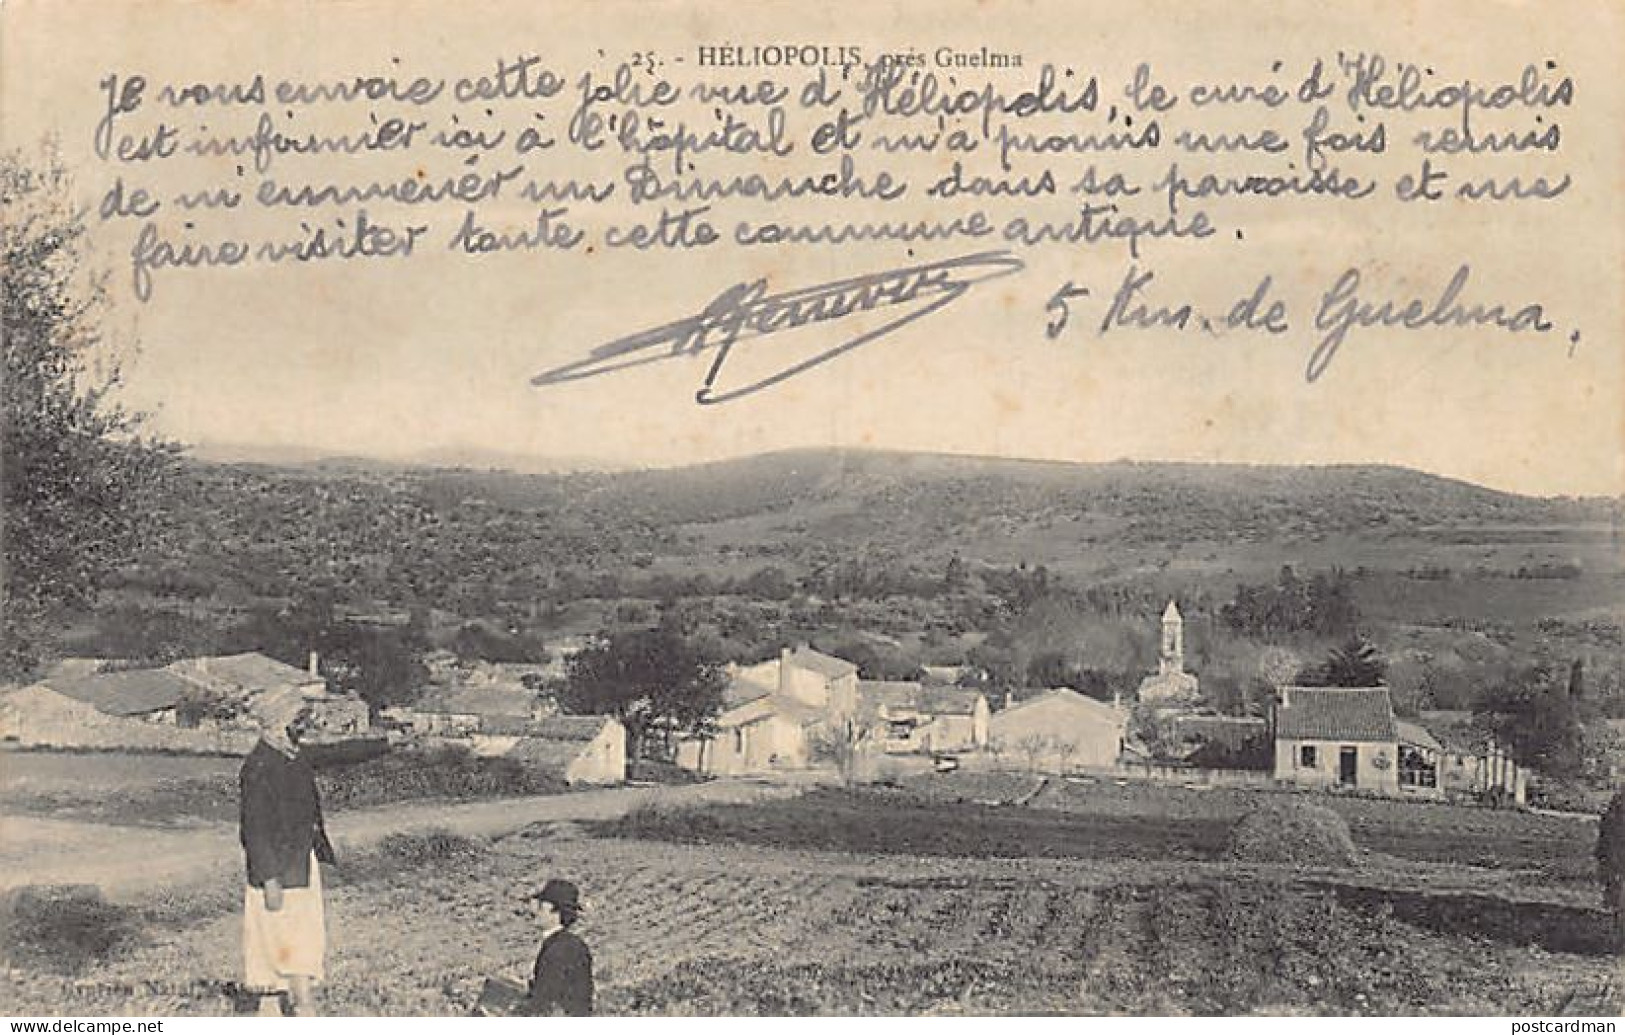 25. - HÉLIOPOLIS, près Guelma
Je vous envoie cette jolie vue d'Héliopolis, le curé d'Héliopolis
est infirmier ici à l'hôpital et m'a promis une fois remis
de m'emmener un Dimanche dans sa paroisse et me
faire visiter toute cette commune antique.
5 Km. de Guelma.
postcardman